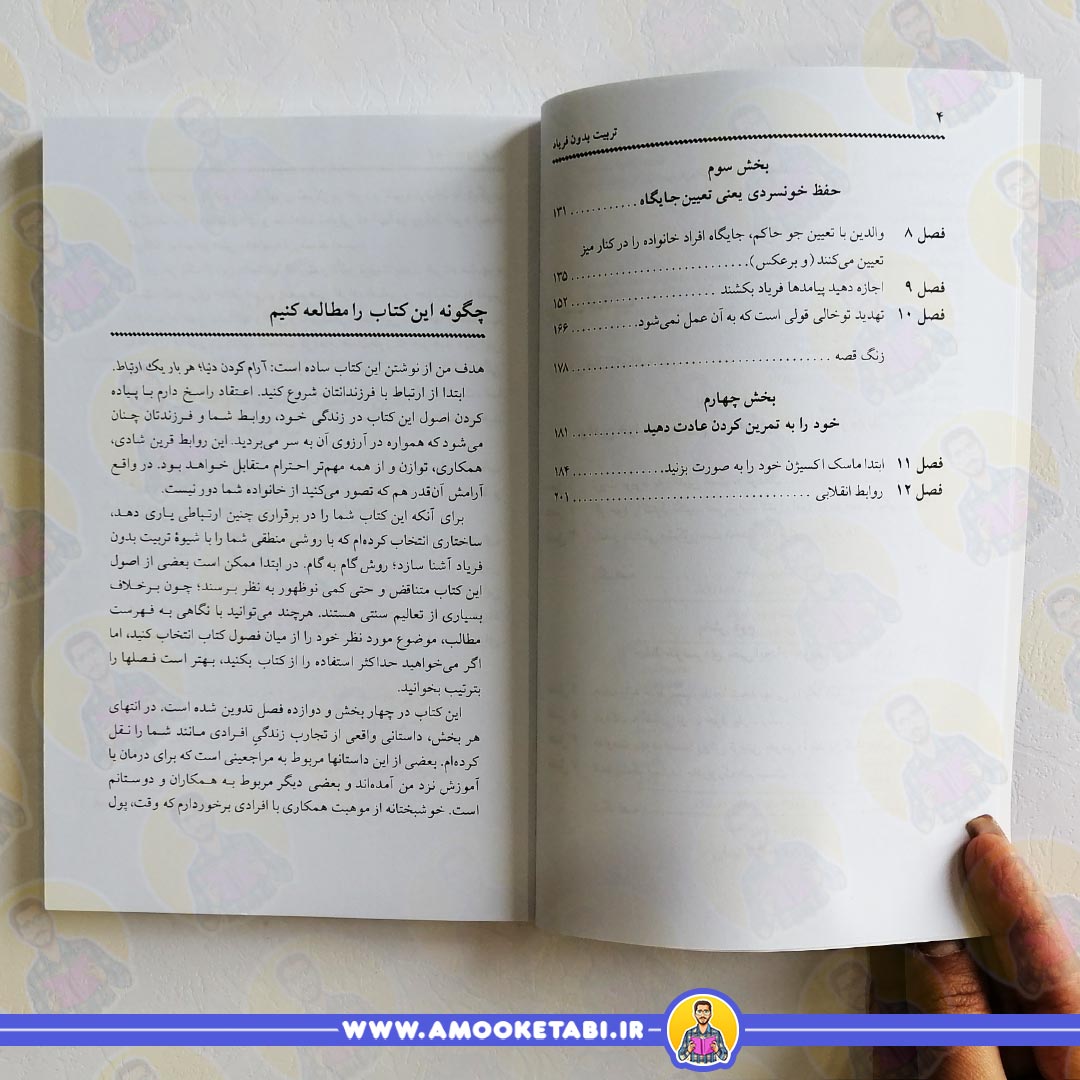 ۴
تربیت بدون فریاد
بخش سوم
حفظ خونسردی یعنی تعیین جایگاه ............ ۱۳۱
فصل ۸ والدین با تعیین جو حاکم، جایگاه افراد خانواده را در کنار میز
تعیین می‌کنند (و برعکس)........................... ۱۳۵
فصل ۹ اجازه دهید پیامدها فریاد بکشند ........................ ۱۵۲
فصل ۱۰ تهدید توخالی قولی است که به آن عمل نمی‌شود............ ۱۶۶
زنگ قصه .................................. ۱۷۸
بخش چهارم
خود را به تمرین کردن عادت دهید ............ ۱۸۱
فصل ۱۱ ابتدا ماسک اکسیژن خود را به صورت بزنید................ ۱۸۴
فصل ۱۲ روابط انقلابی .................................... ۲۰۱
چگونه این کتاب را مطالعه کنیم
هدف من از نوشتن این کتاب ساده است: آرام کردن دنیا؛ هر بار یک ارتباط.
ابتدا از ارتباط با فرزندانتان شروع کنید. اعتقاد راسخ دارم با پیاده
کردن اصول این کتاب در زندگی خود، روابط شما و فرزندتان چنان
می‌شود که همواره در آرزوی آن به سر می‌بردید. این روابط قرین شادی،
همکاری، توازن و از همه مهم‌تر احترام متقابل خواهد بود. در واقع
آرامش آن‌قدر هم که تصور می‌کنید از خانواده شما دور نیست.
برای آنکه این کتاب شما را در برقراری چنین ارتباطی یاری دهد،
ساختاری انتخاب کرده‌ام که با روشی منطقی شما را با شیوهٔ تربیت بدون
فریاد آشنا سازد؛ روش گام به گام. در ابتدا ممکن است بعضی از اصول
این کتاب متناقض و حتی کمی نوظهور به نظر برسند؛ چون برخلاف
بسیاری از تعالیم سنتی هستند. هرچند می‌توانید با نگاهی به فهرست
مطالب، موضوع مورد نظر خود را از میان فصول کتاب انتخاب کنید، اما
اگر می‌خواهید حداکثر استفاده را از کتاب بکنید، بهتر است فصلها را
بترتیب بخوانید.
این کتاب در چهار بخش و دوازده فصل تدوین شده است. در انتهای
هر بخش، داستانی واقعی از تجارب زندگیِ افرادی مانند شما را نقل
کرده‌ام. بعضی از این داستانها مربوط به مراجعینی است که برای درمان یا
آموزش نزد من آمده‌اند و بعضی دیگر مربوط به همکاران و دوستانم
است. خوشبختانه از موهبت همکاری با افرادی برخوردارم که وقت، پول
WWW.AMOOKETABI.IR